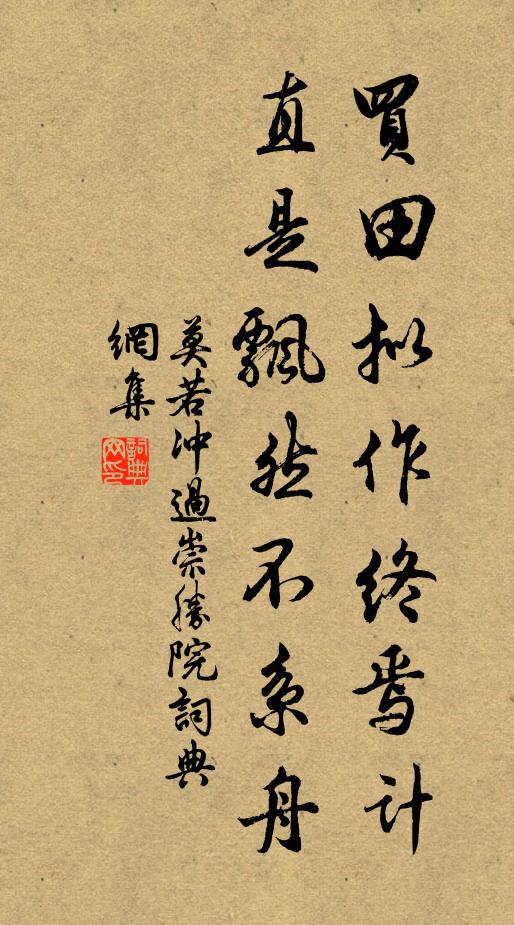 買田拟作終焉計
直是飄然不系舟
莫若冲過崇勝院詞典
網集
詞典網印